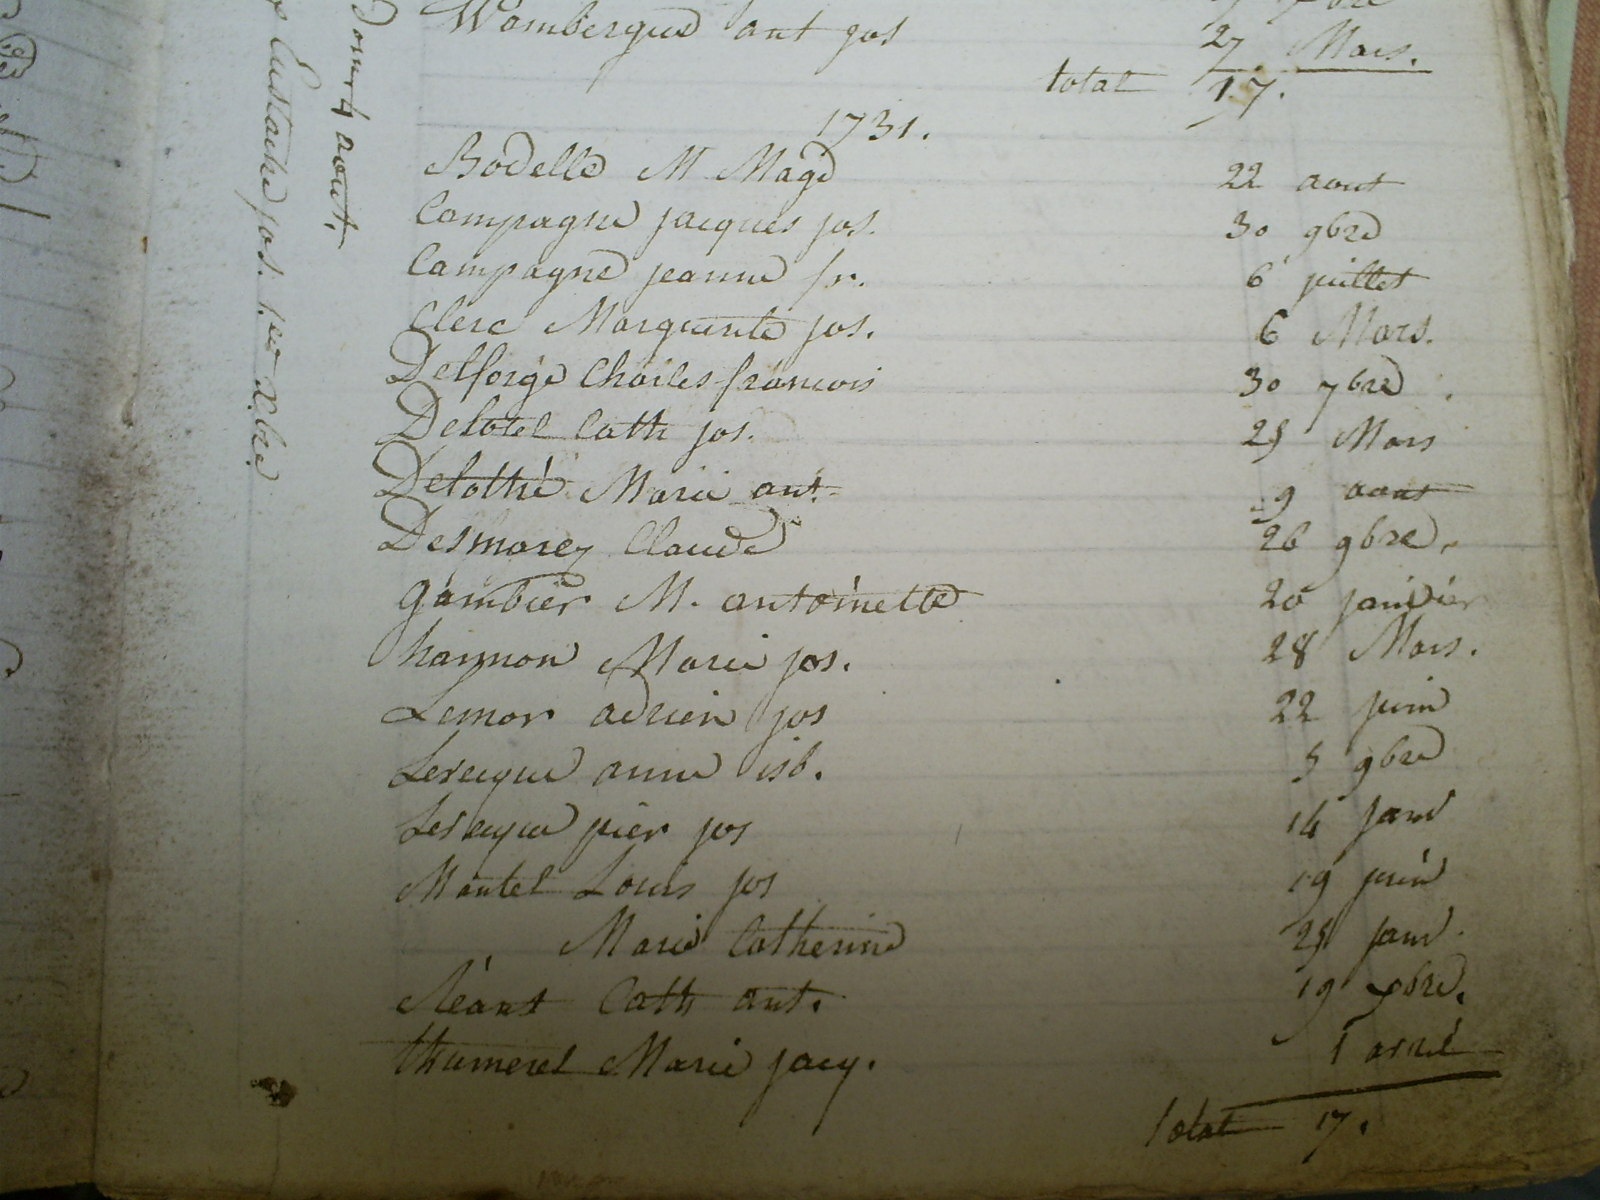 Wambergue ant jos 27 Mars.
total 17.
1731.
Bodelle M Magd 22 aout
Campagne jacques jos. 30 9bre
Campagne jeanne fr. 6 juillet
Clerc Marguerite jos. 6 Mars.
Delforge Charles francois 30 7bre
Delotel Cath jos. 25 Mars
Delottré Marie ant 9 aout
Desmarez Claude 26 9bre.
gambier M. antoinette 20 janvier
hannon Marie jos. 28 Mars.
Lemor adrien jos 22 juin
Levecque anne isb. 5 9bre
Levecque pier jos 14 janv
Mantel Louis jos 19 juin
Marie Catherine 25 janv.
Cath ant. 19
thumerel Marie jacq. 1 avril
total 17.
4 aout.
Eustache jos. 1er Xbre